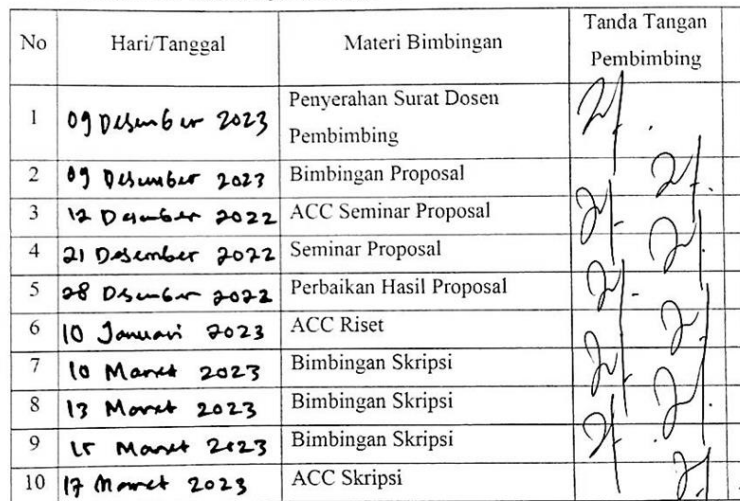 No Hari/Tanggal Materi Bimbingan Tanda Tangan Pembimbing
1 09 Desember 2023 Penyerahan Surat Dosen Pembimbing
2 09 Desember 2023 Bimbingan Proposal
3 12 Desember 2022 ACC Seminar Proposal
4 21 Desember 2022 Seminar Proposal
5 28 Desember 2022 Perbaikan Hasil Proposal
6 10 Januari 2023 ACC Riset
7 10 Maret 2023 Bimbingan Skripsi
8 13 Maret 2023 Bimbingan Skripsi
9 15 Maret 2023 Bimbingan Skripsi
10 17 Maret 2023 ACC Skripsi